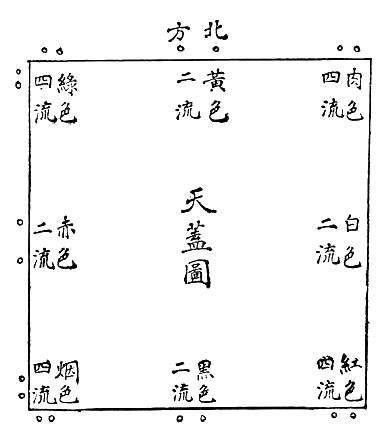 北方
肉色
四流
黃色
二流
綠色
四流
白色
二流
天蓋圖
赤色
二流
紅色
四流
黑色
二流
烟色
四流